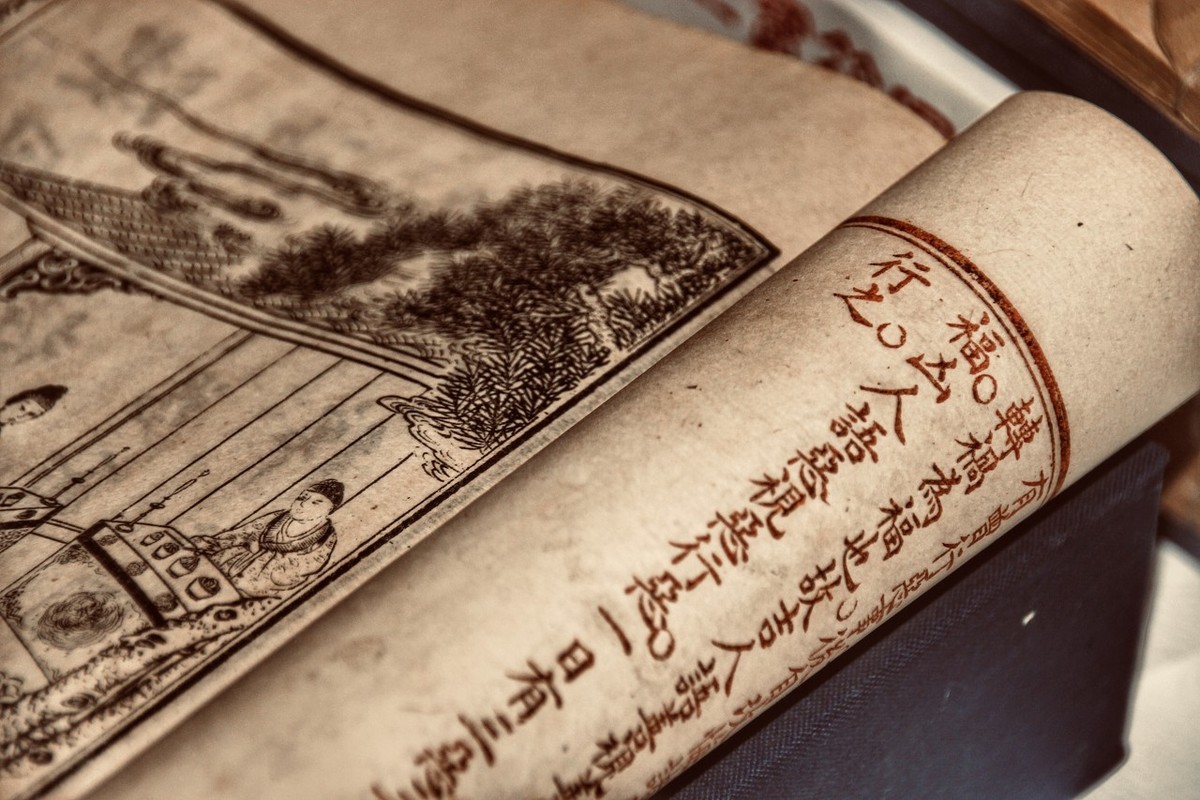 有曾行惡事。後自改悔
轉禍為福也故吉人語善視善
福。凶人語惡視惡行惡。一日有三惡
行之。